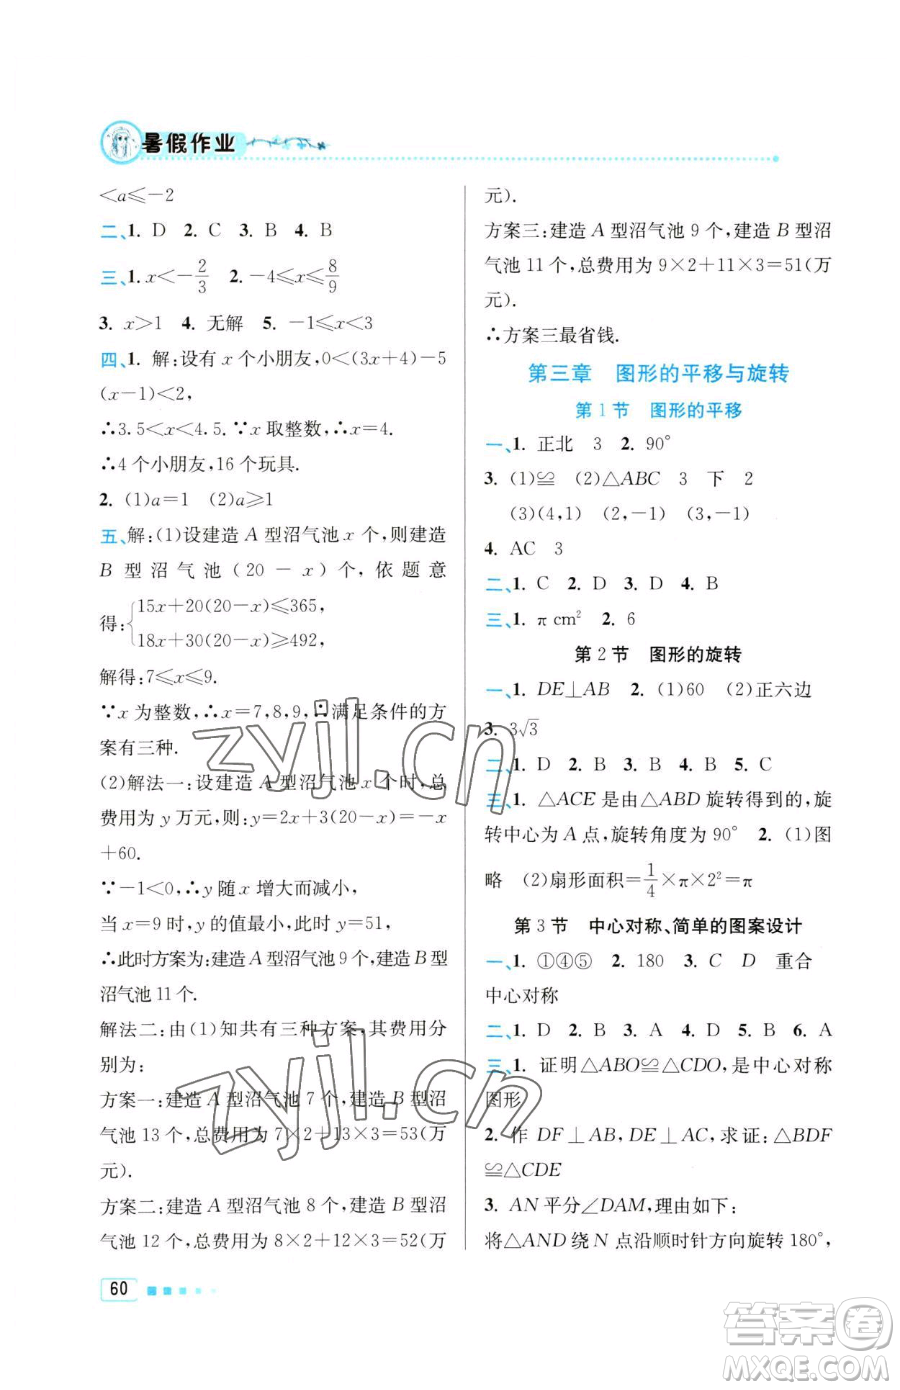 暑假作业
<a≤-2
二、1. D 2. C 3. B 4. B
三、1. x<-2/3 2. -4≤x≤8/9
3. x>1 4. 无解 5. -1≤x<3
四、1. 解:设有 x 个小朋友,0<(3x+4)-5
(x-1)<2,
∴3.5<x<4.5. ∵x 取整数,∴x=4.
∴4 个小朋友,16 个玩具.
2. (1)a=1 (2)a≥1
五、解:(1)设建造 A 型沼气池 x 个,则建造
B 型沼气池(20-x)个,依题意
得:{15x+20(20-x)≤365,
18x+30(20-x)≥492,
解得:7≤x≤9.
∵x 为整数,∴x=7,8,9,∴满足条件的方
案有三种.
(2)解法一:设建造 A 型沼气池 x 个时,总
费用为 y 万元,则:y=2x+3(20-x)=-x
+60.
∵-1<0,∴y 随 x 增大而减小,
当 x=9 时,y 的值最小,此时 y=51,
∴此时方案为:建造 A 型沼气池 9 个,建造 B 型
沼气池 11 个.
解法二:由(1)知共有三种方案,其费用分
别为:
方案一:建造 A 型沼气池 7 个,建造 B 型沼
气池 13 个,总费用为 7×2+13×3=53(万
元).
方案二:建造 A 型沼气池 8 个,建造 B 型沼
气池 12 个,总费用为 8×2+12×3=52(万
元).
方案三:建造 A 型沼气池 9 个,建造 B 型沼
气池 11 个,总费用为 9×2+11×3=51(万
元).
∴方案三最省钱.
第三章 图形的平移与旋转
第 1 节 图形的平移
一、1. 正北 3 2. 90°
3. (1)≌ (2)△ABC 3 下 2
(3)(4,1) (2,-1) (3,-1)
4. AC 3
二、1. C 2. D 3. D 4. B
三、1. π cm² 2. 6
第 2 节 图形的旋转
一、1. DE⊥AB 2. (1)60 (2)正六边
3. 3√3
二、1. D 2. B 3. B 4. B 5. C
三、1. △ACE 是由△ABD 旋转得到的,旋
转中心为 A 点,旋转角度为 90° 2. (1)图
略 (2)扇形面积=1/4×π×2²=π
第 3 节 中心对称、简单的图案设计
一、1. ①④⑤ 2. 180 3. C D 重合
中心对称
二、1. D 2. B 3. A 4. D 5. B 6. A
三、1. 证明△ABO≌△CDO,是中心对称
图形
2. 作 DF⊥AB,DE⊥AC,求证:△BDF
≌△CDE
3. AN 平分∠DAM,理由如下:
将△AND 绕 N 点沿顺时针方向旋转 180°,
60
zyjl.cn
zyjl.cn
答案圈
MXQE.COM